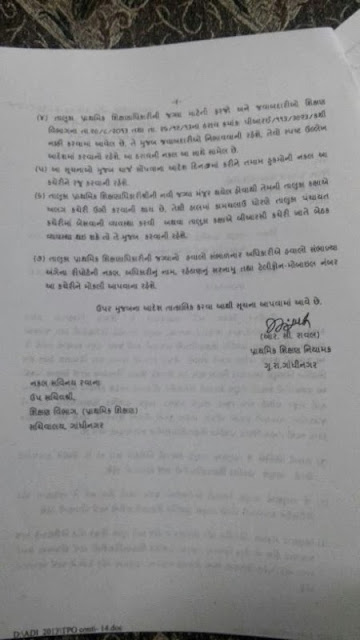 (૪) તાલુકા પ્રાથમિક શિક્ષણાધિકારીની જગ્યા માટેની ફરજો અને જવાબદારીઓ શિક્ષણ
વિભાગના તા
નક્કી કરવામાં આવેલ છે. તે મુજબ જવાબદારીઓ નિભાવવાની રહેશે. તેવો સ્પષ્ટ ઉલ્લેખ
આદેશમાં કરવાનો રહેશે. આ ઠરાવની નકલ આ સાથે સામેલ છે.
(૫) આ સૂચનાઓ મુજબ ચાર્જ સોંપવાના આદેશ દિન-૭માં કરીને તમામ હુકમોની નકલ આ
કચેરીને રજુ કરવાની રહેશે.
(૬) તાલુકા પ્રાથમિક શિક્ષણાધિકારીશ્રીની નવી જગ્યા મંજુર થયેલ હોવાથી તેમની તાલુકા કક્ષાએ
અલગ કચેરી ઉભી કરવાની થાય છે. તેથી હાલમાં કામચલાઉ ધોરણે તાલુકા પંચાયત
કચેરીમાં બેસવાની વ્યવસ્થા કરવી અથવા તાલુકા કક્ષાએ બીઆરસી કચેરી ખાતે બેઠક
વ્યવસ્થા થઇ શકે તો તે મુજબ કરવાની રહેશે.
(૭) તાલુકા પ્રાથમિક શિક્ષણાધિકારીની જગ્યાનો હવાલો સંભાળનાર અધિકારીએ હવાલો સંભાળ્યા
અંગેના રીપોર્ટની નકલ, અધિકારીનું નામ, રહેઠાણનું સરનામુ તથા ટેલીફોન-મોબાઇલ નંબર
આ કચેરીને મોકલી આપવાના રહેશે.
ઉપર મુજબના આદેશ તાત્કાલિક કરવા આથી સૂચના આપવામાં આવે છે.
(આર. સી. રાવલ)
પ્રાથમિક શિક્ષણ નિયામક
ગુ.રા.ગાંધીનગર
નકલ સવિનય રવાના
ઉપ સચિવશ્રી,
શિક્ષણ વિભાગ, (પ્રાથમિક શિક્ષણ)
સચિવાલય, ગાંધીનગર
D:\ADI 2013\TPO 14.doc